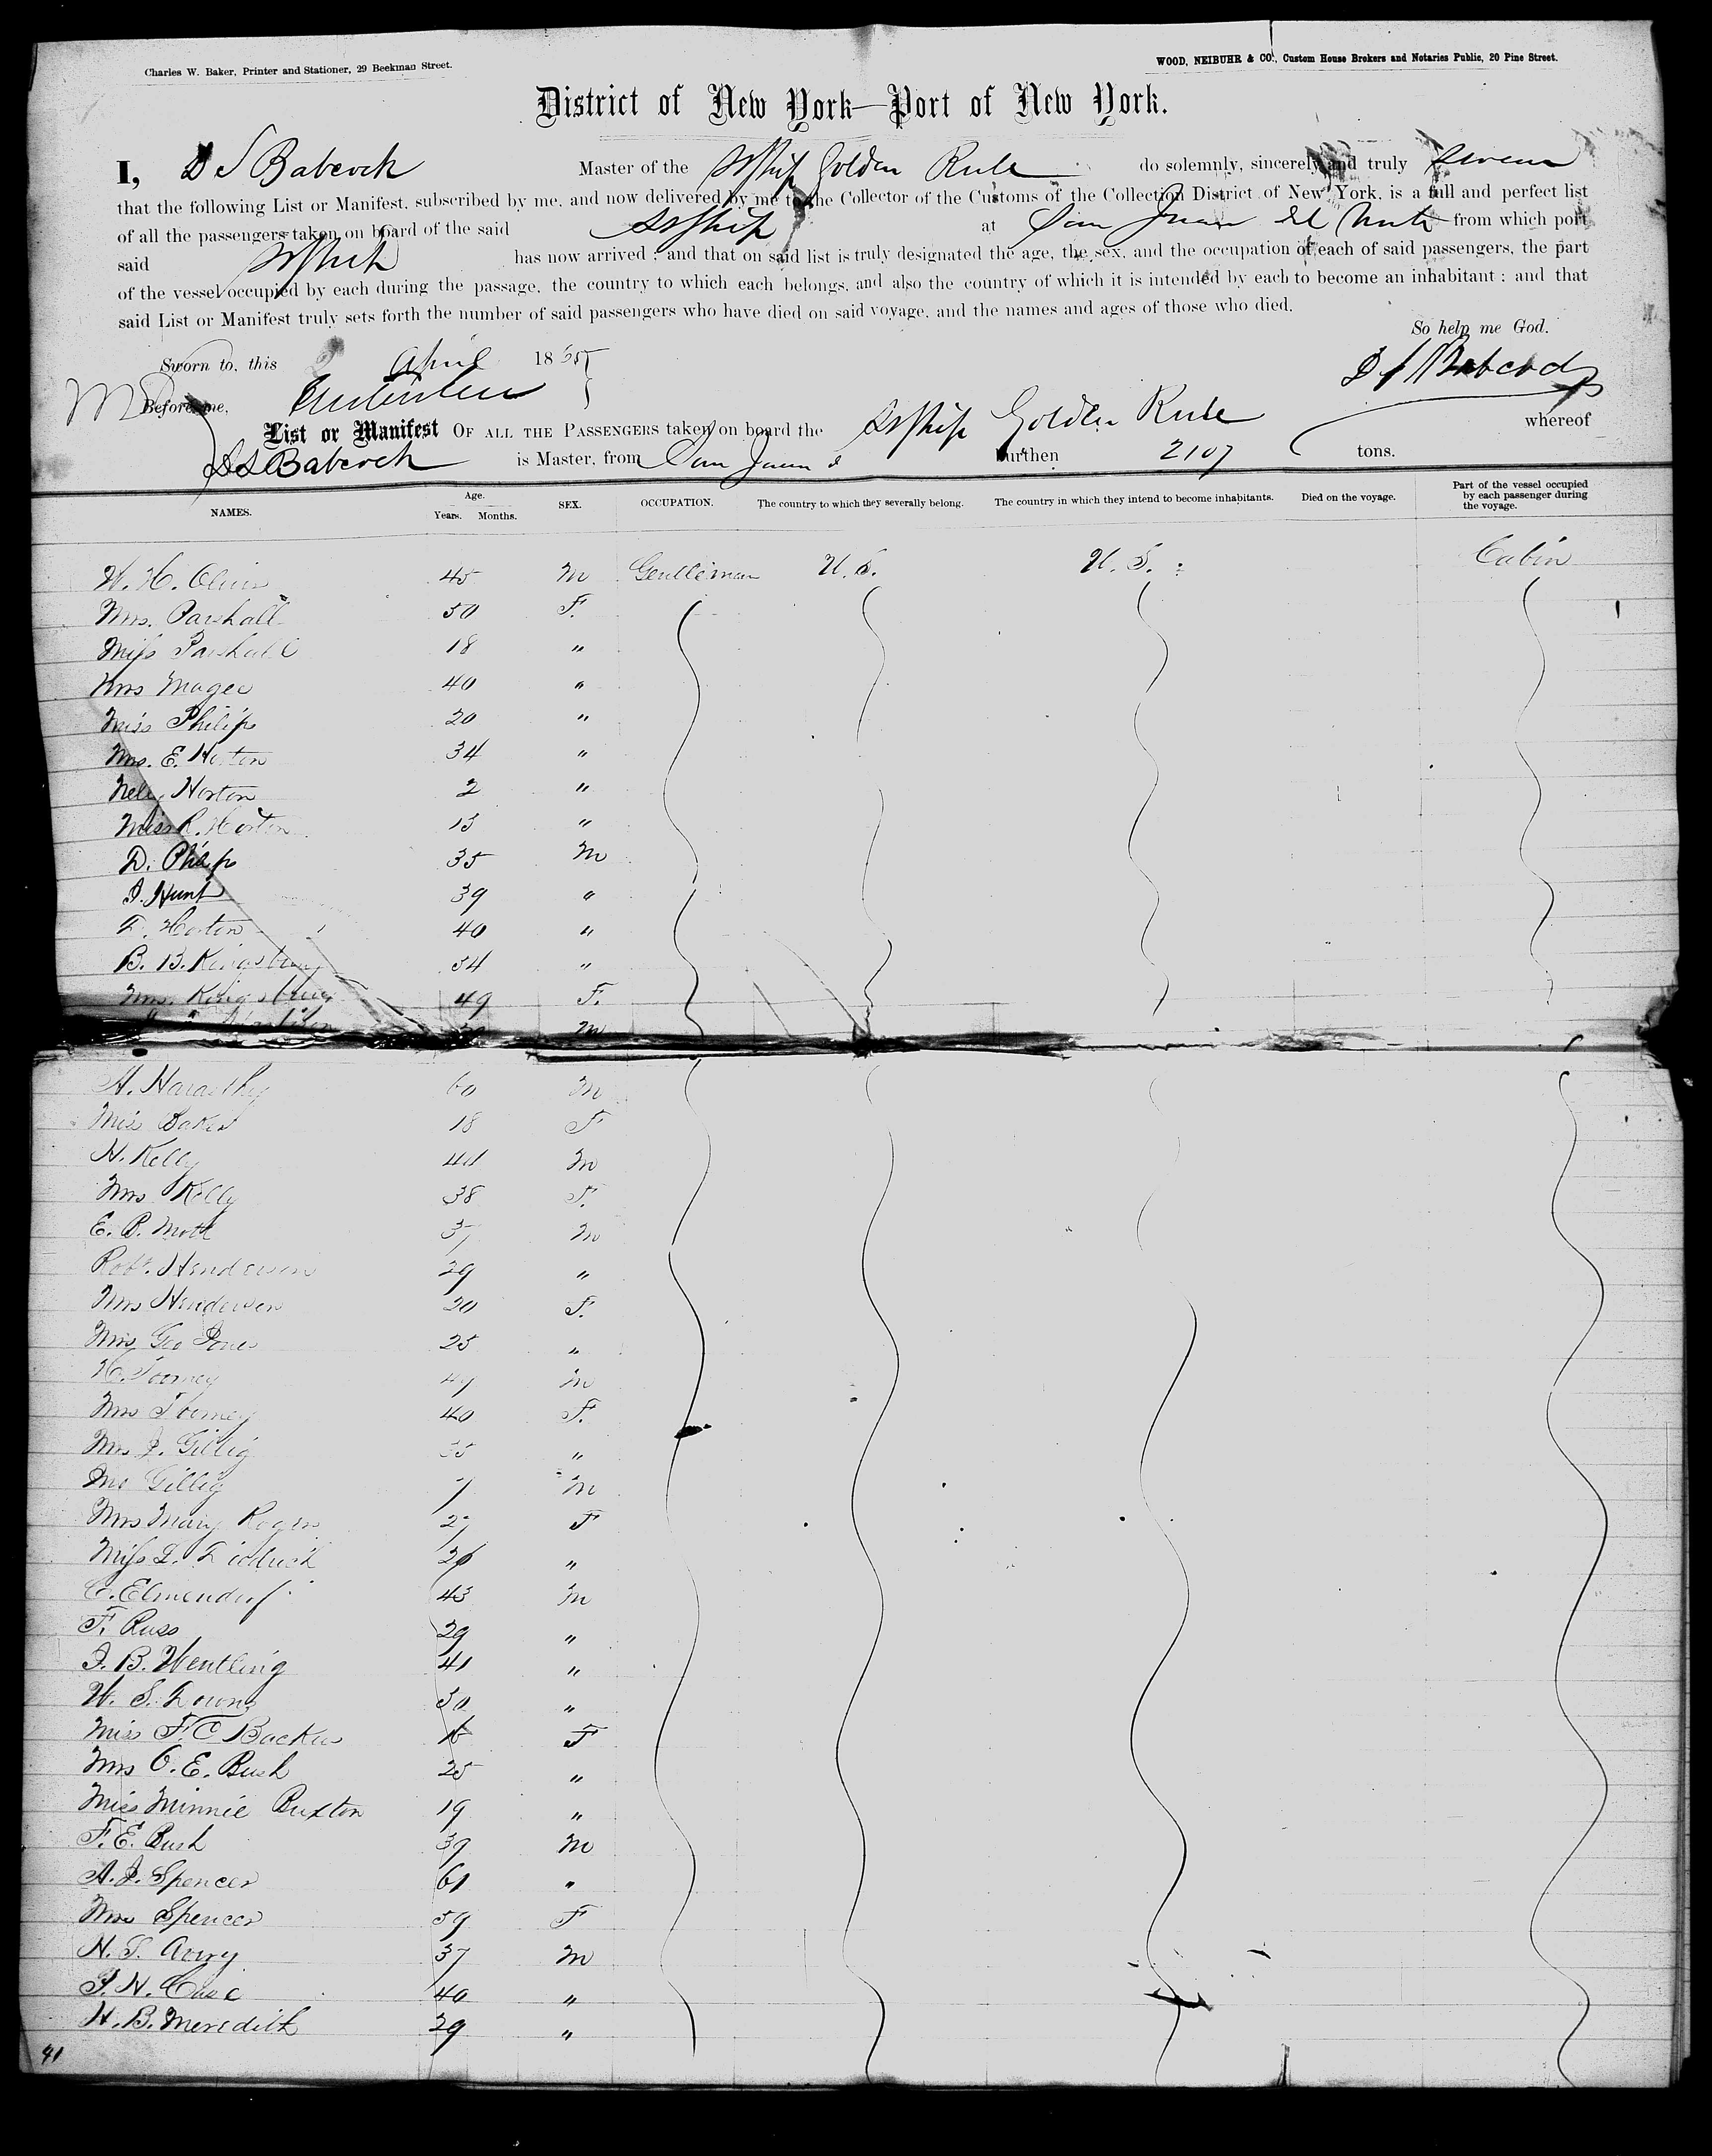 Charles W. Baker, Printer and Stationer, 29 Beekman Street.
WOOD, NEIBUHR & CO., Custom House Brokers and Notaries Public, 20 Pine Street.
District of New York—Port of New York.
I, D S Babcock Master of the SShip Golden Rule do solemnly, sincerely and truly swear
that the following List or Manifest, subscribed by me, and now delivered by me to the Collector of the Customs of the Collection District of New York, is a full and perfect list
of all the passengers taken on board of the said SShip at San Juan del Norte from which port
said SShip has now arrived; and that on said list is truly designated the age, the sex, and the occupation of each of said passengers, the part
of the vessel occupied by each during the passage, the country to which each belongs, and also the country of which it is intended by each to become an inhabitant; and that
said List or Manifest truly sets forth the number of said passengers who have died on said voyage, and the names and ages of those who died.
So help me God.
Sworn to, this 2 April 1865
D S Babcock
Before me,
List or Manifest OF ALL THE PASSENGERS taken on board the SShip Golden Rule whereof
D S Babcock is Master, from San Juan d burthen 2107 tons.
NAMES. Age. Years. Months. SEX. OCCUPATION. The country to which they severally belong. The country in which they intend to become inhabitants. Died on the voyage. Part of the vessel occupied by each passenger during the voyage.
W. H. 45 M Gentleman U.S. U.S. Cabin
Mrs. Parshall 50 F.
Miss Parshall 18 "
Mrs Magee 40 "
Miss Philip 20 "
Mrs. E. Horton 34 "
Nely Horton 2 "
Miss R. Horton 13 "
D. Philip 35 M
J. Hunt 39 "
D. Horton 40 "
B. B. Kingsbury 34 "
Mrs. Kingsbury 49 F.
M
A. Haraszthy 60 M
Miss Baker 18 F
H. Kelly 44 M
Mrs Kelly 38 F.
E. B. Mott 37 M
Robt. Henderson 29 "
Mrs Henderson 20 F.
Mrs Geo Jones 25 "
H. Toomey M
Mrs Toomey 40 F.
Mrs J. Gillig 35 "
Gillig 7 M
Mrs Mary Rogers 27 F
Miss L. 26 "
C. Elmendorf 43 M
F. Russ 29 "
J. B. Wentling 41 "
W. S. Downs 30 "
Miss F. C Backus 16 F
Mrs O. E. Bush 25 "
Miss Minnie Buxton 19 "
F. E. Bush 39 M
A. J. Spencer 61 "
Mrs Spencer 59 F
N. S. Avery 37 M
J. H. Case 40 "
H. B. Meredith 29 "
41